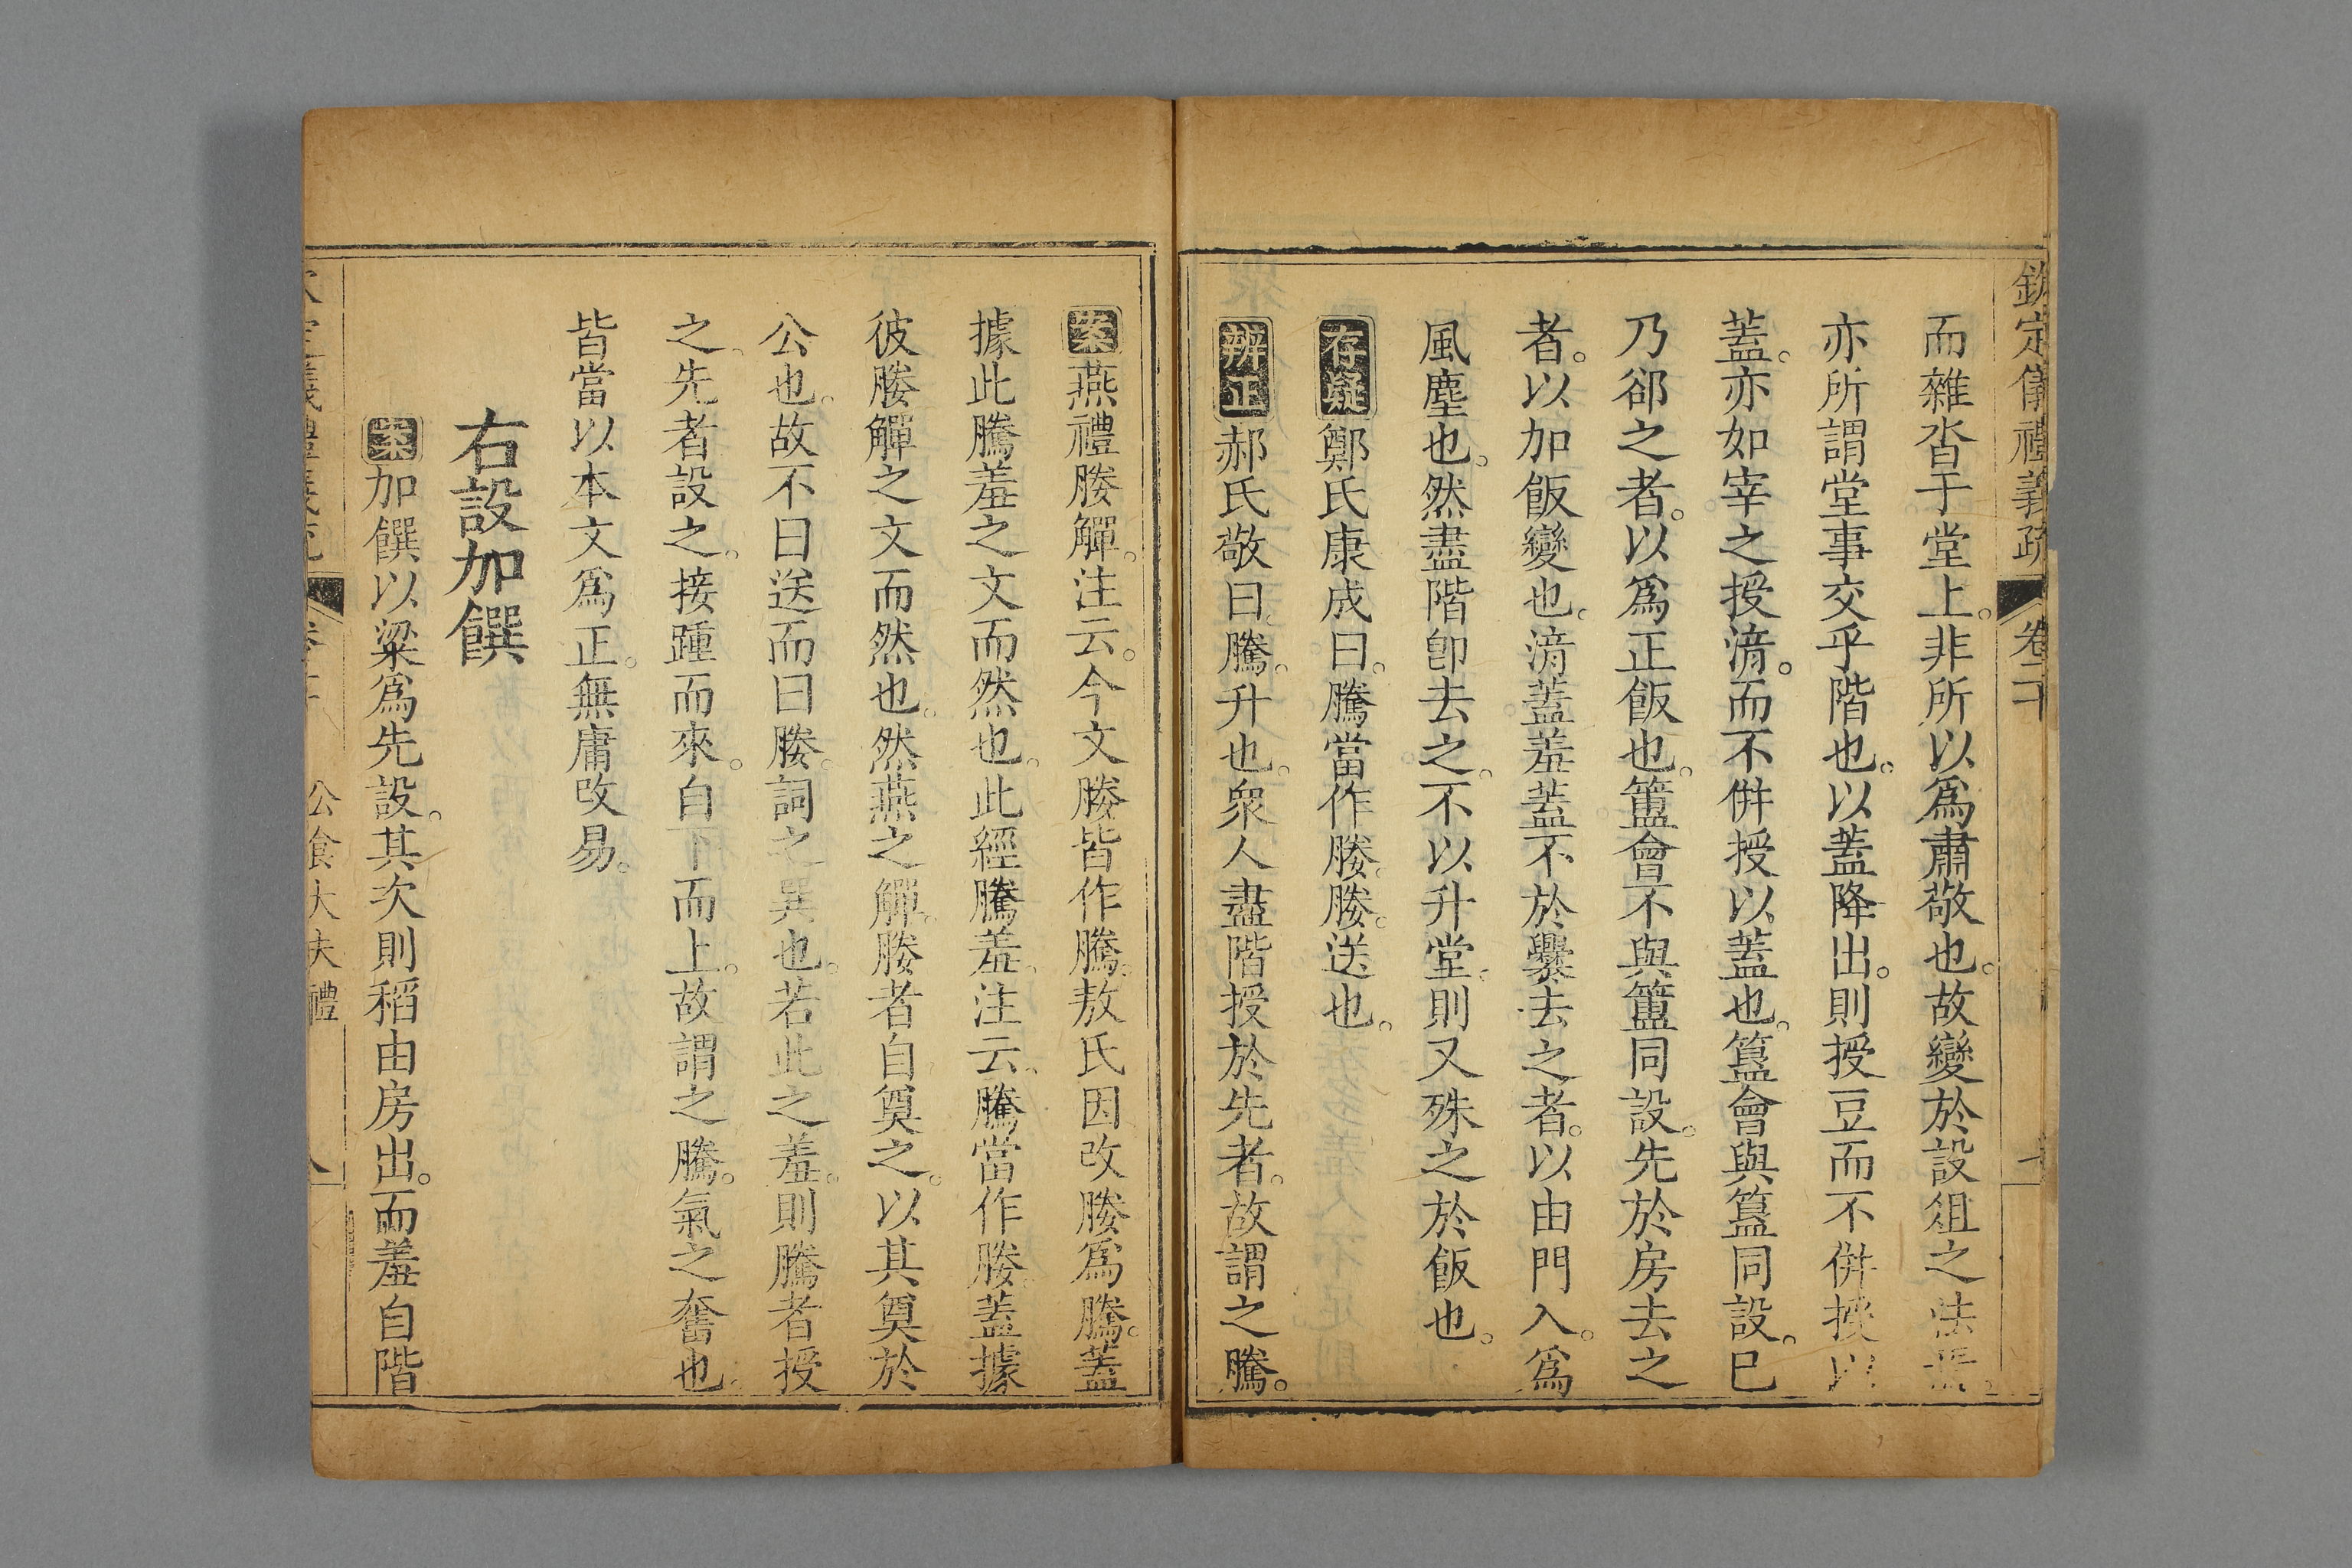 欽定儀禮義疏 卷二十
而雜沓于堂上。非所以爲肅敬也。故變於設俎之法
亦所謂堂事交乎階也。以蓋降出。則授豆而不併授以
蓋。亦如宰之授湆。而不併授以蓋也。簋會與簋同設。已
乃郤之者。以爲正飯也。簠會不與簠同設。先於房去之
者。以加飯變也。湆蓋羞蓋不於爨去之者。以由門入。爲
風塵也。然盡階卽去之。不以升堂。則又殊之於飯也。
存疑鄭氏康成曰。騰當作媵。媵。送也。
辨正郝氏敬曰。騰。升也。衆人盡階授於先者。故謂之騰。
案燕禮媵觶。注云。今文媵皆作騰。敖氏因改媵爲騰。蓋
據此騰羞之文而然也。此經騰羞。注云。騰當作媵。蓋據
彼媵觶之文而然也。然燕之觶。媵者自奠之。以其奠於
公也。故不曰送而曰媵。詞之異也。若此之羞。則騰者授
之先者設之。接踵而來。自下而上。故謂之騰。氣之奮也。
皆當以本文爲正。無庸改易。
右設加饌
案加饌以粱爲先設。其次則稻由房出。而羞自階
公食大夫禮